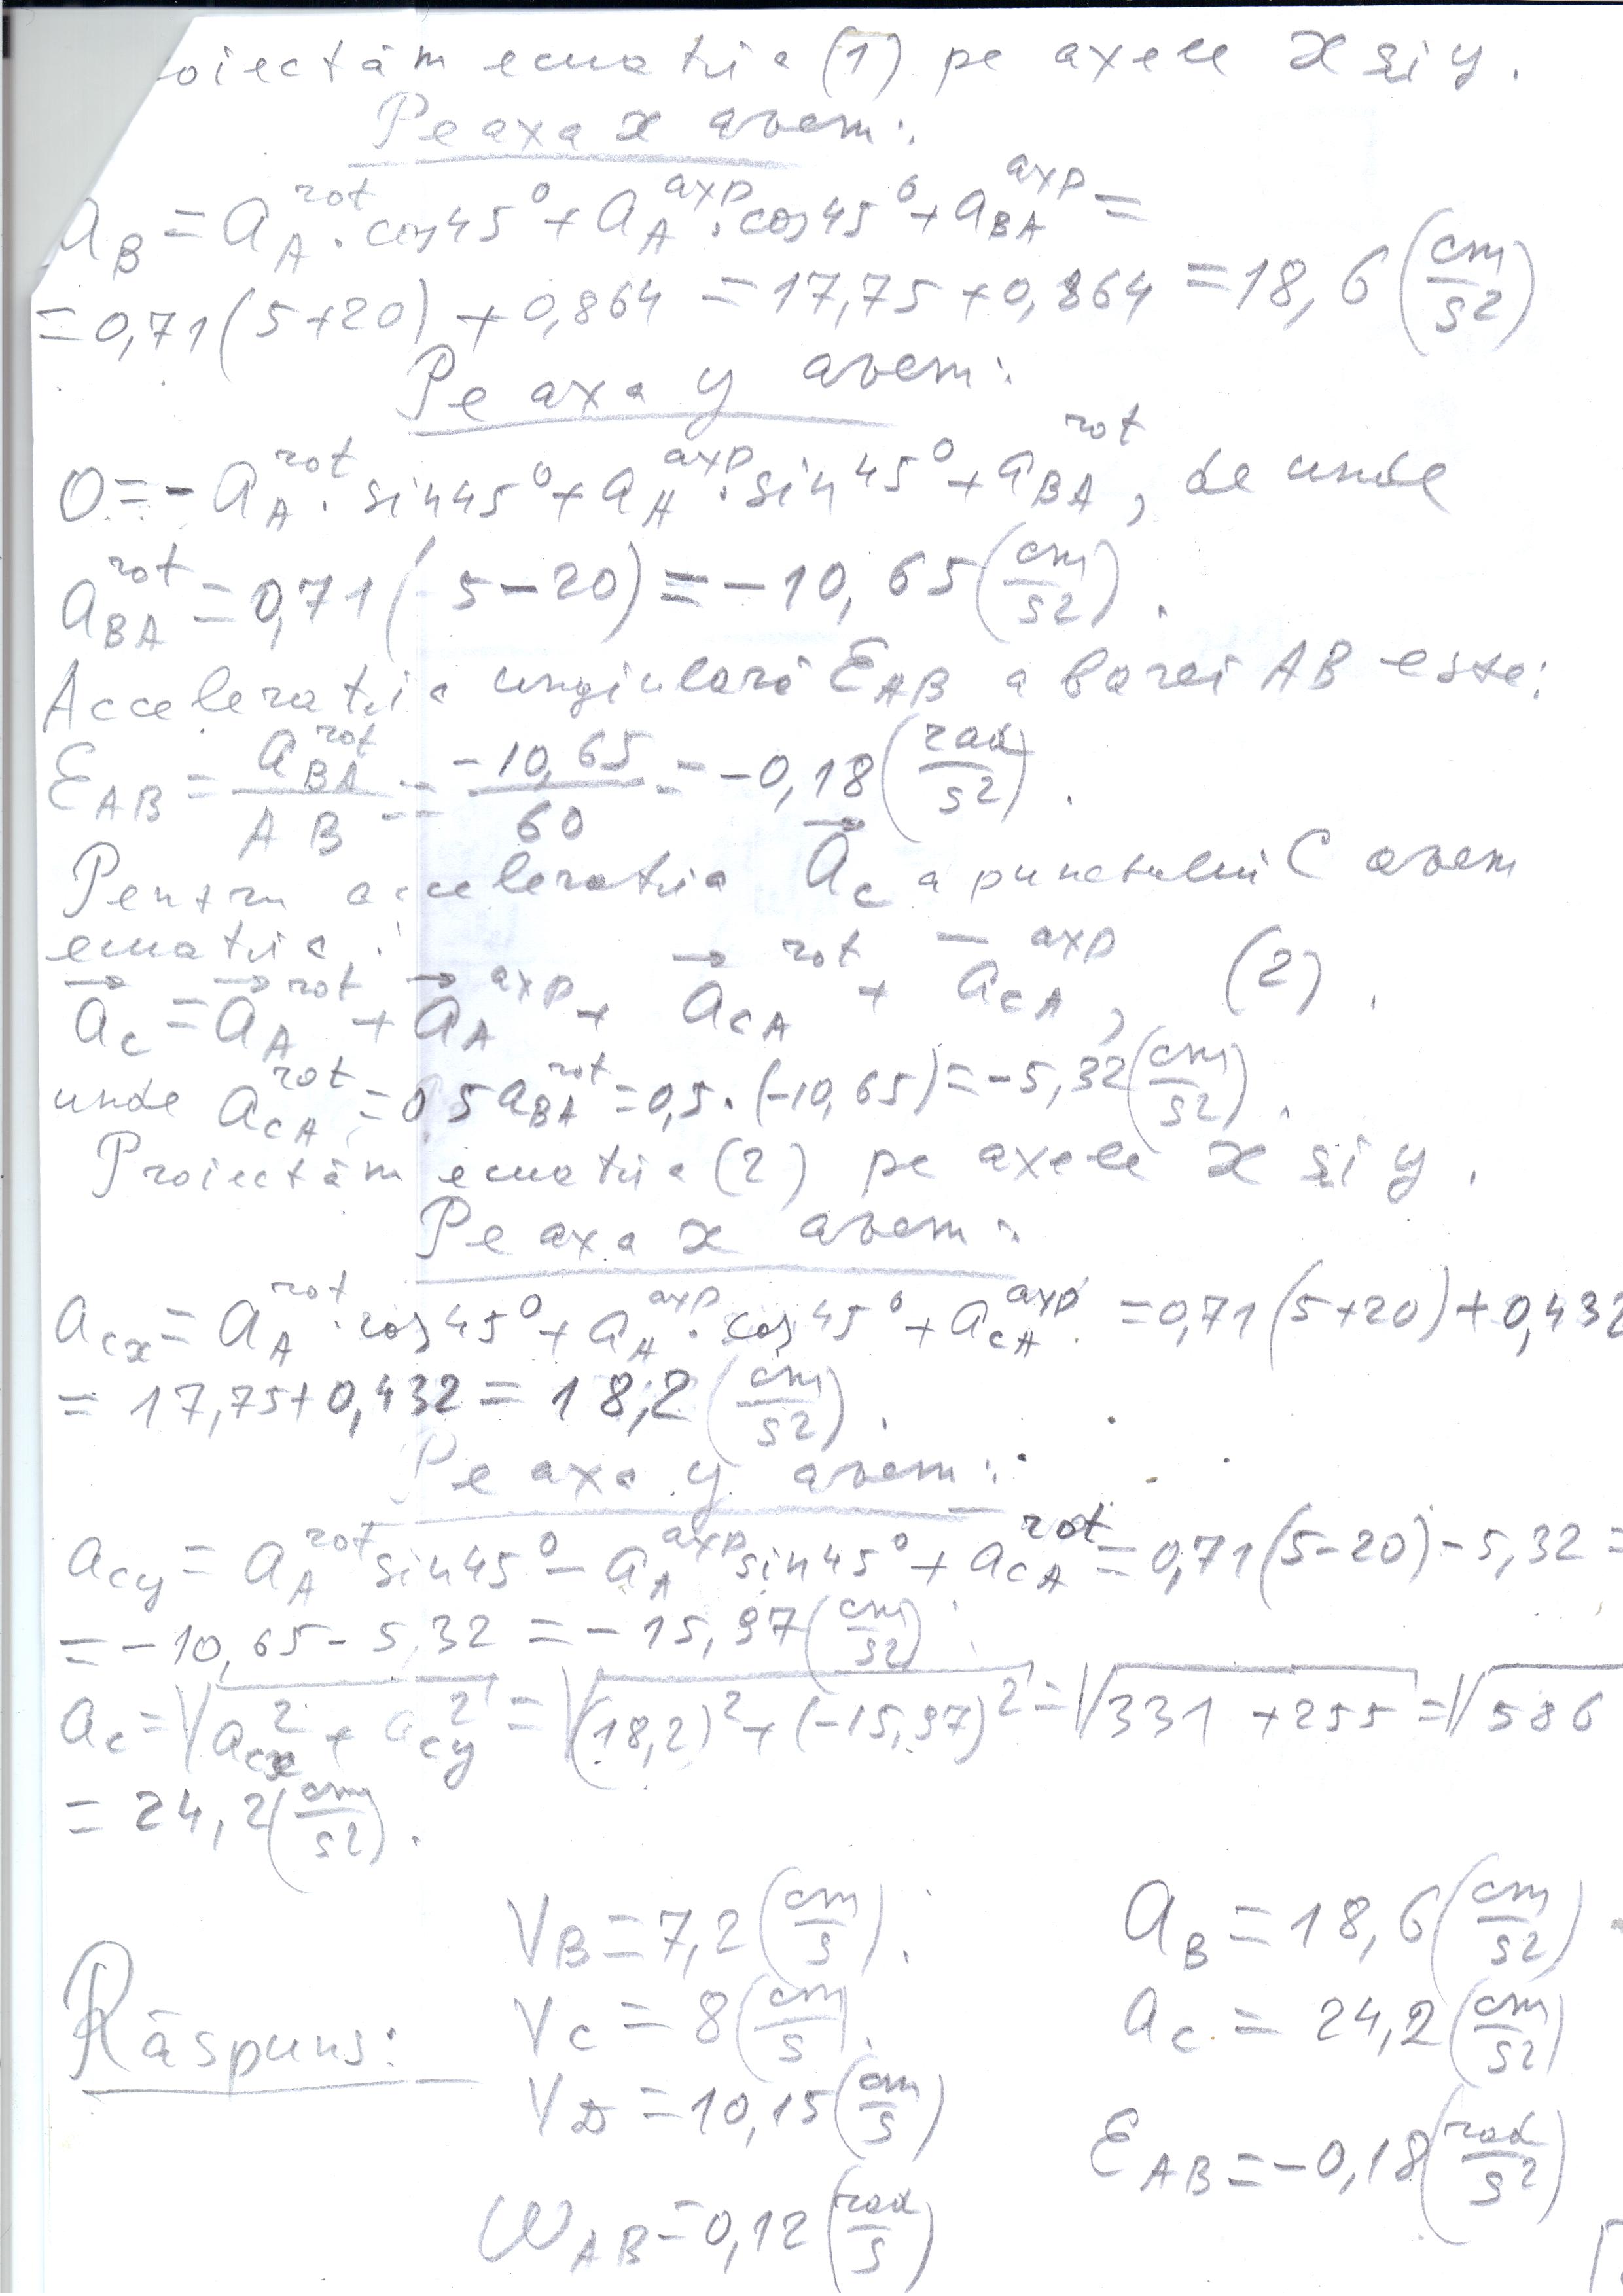 oiectăm ecuația (1) pe axele x și y.
Pe axa x avem:
a_B = a_A^rot · cos45° + a_A^axp · cos45° + a_BA^axp =
= 0,71(5+20) + 0,864 = 17,75 + 0,864 = 18,6 (cm/s2)
Pe axa y avem:
0 = - a_A^rot · sin45° + a_A^axp · sin45° + a_BA^rot, de unde
a_BA^rot = 0,71(5-20) = -10,65 (cm/s2).
Accelerația unghiulară E_AB a barei AB este:
E_AB = a_BA^rot / AB = -10,65 / 60 = -0,18 (rad/s2).
Pentru accelerația a_c a punctului C avem
ecuația:
a_c = a_A^rot + a_A^axp + a_CA^rot + a_CA^axp, (2).
unde a_CA^rot = 0,5 a_BA^rot = 0,5·(-10,65) = -5,32 (cm/s2).
Proiectăm ecuația (2) pe axele x și y.
Pe axa x avem:
a_cx = a_A^rot · cos45° + a_A^axp · cos45° + a_CA^axp = 0,71(5+20) + 0,432
= 17,75 + 0,432 = 18,2 (cm/s2).
Pe axa y avem:
a_cy = a_A^rot sin45° - a_A^axp sin45° + a_CA^rot = 0,71(5-20) - 5,32 =
= -10,65 - 5,32 = -15,97 (cm/s2).
a_c = √(a_cx^2 + a_cy^2) = √((18,2)^2 + (-15,97)^2) = √(331 + 255) = √586
= 24,2 (cm/s2).
Răspuns:
V_B = 7,2 (cm/s).
V_C = 8 (cm/s).
V_D = 10,15 (cm/s)
ω_AB = 0,12 (rad/s)
a_B = 18,6 (cm/s2)
a_c = 24,2 (cm/s2)
E_AB = -0,18 (rad/s2)